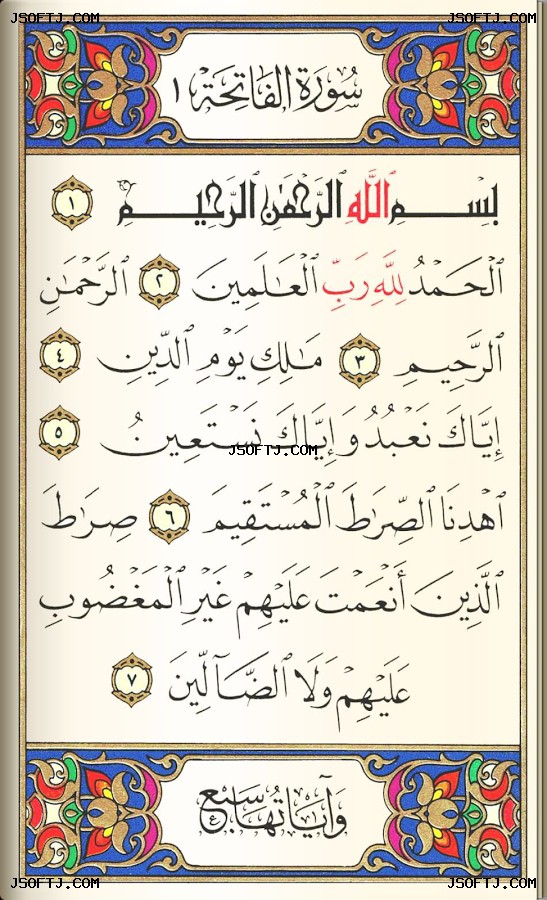 JSOFTJ.COM JSOFTJ.COM
سُورَةُ الفَاتِحَة ١
بِسْمِ ٱللَّهِ ٱلرَّحْمَٰنِ ٱلرَّحِيمِ ١
ٱلْحَمْدُ لِلَّهِ رَبِّ ٱلْعَٰلَمِينَ ٢ ٱلرَّحْمَٰنِ
ٱلرَّحِيمِ ٣ مَٰلِكِ يَوْمِ ٱلدِّينِ ٤
إِيَّاكَ نَعْبُدُ وَإِيَّاكَ نَسْتَعِينُ ٥
JSOFTJ.COM
ٱهْدِنَا ٱلصِّرَٰطَ ٱلْمُسْتَقِيمَ ٦ صِرَٰطَ
ٱلَّذِينَ أَنْعَمْتَ عَلَيْهِمْ غَيْرِ ٱلْمَغْضُوبِ
عَلَيْهِمْ وَلَا ٱلضَّآلِّينَ ٧
وَآيَاتُهَا سَبْع
JSOFTJ.COM JSOFTJ.COM